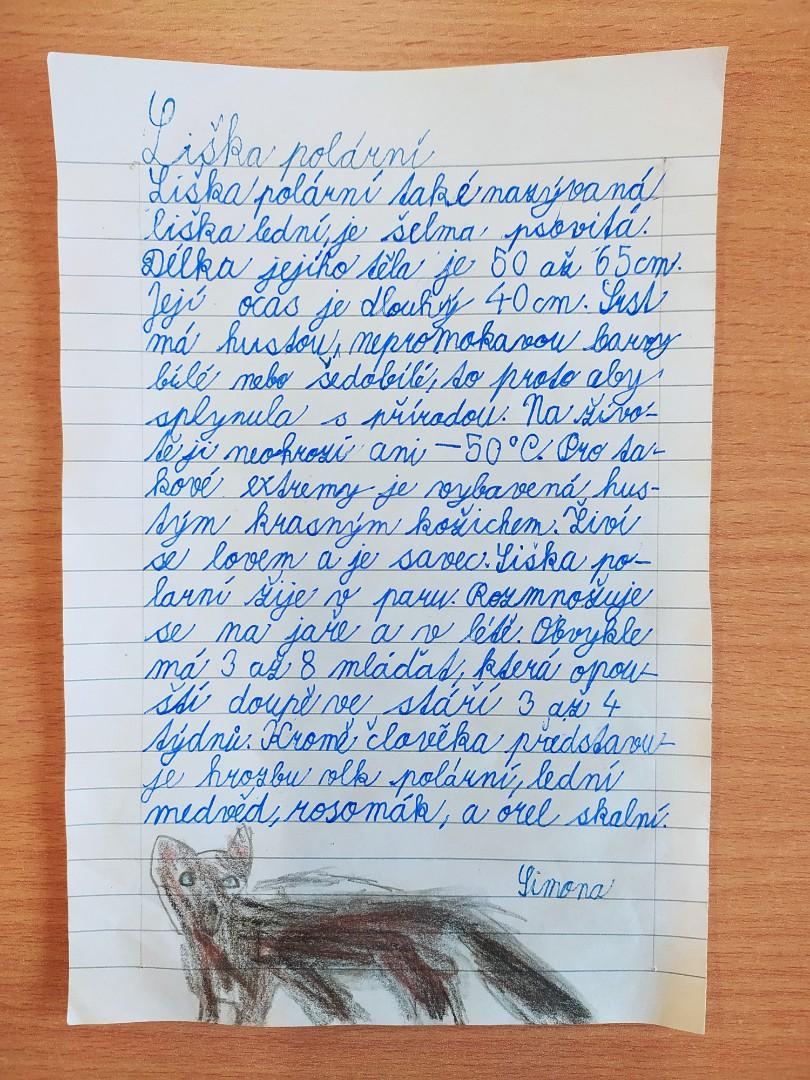 Liška polární
Liška polární také nazývaná
liška lední, je šelma psovitá.
Délka jejího těla je 50 až 65cm.
Její ocas je dlouhý 40 cm. Srst
má hustou, nepromokavou barvy
bílé nebo šedobílé, to proto aby
splynula s přírodou. Na živo-
tě ji neohrozí ani -50°C. Pro ta-
kové extremy je vybavená hus-
tým krasným kožichem. Živí
se lovem a je savec. Liška po-
larní žije v paru. Rozmnožuje
se na jaře a v létě. Obvykle
má 3 až 8 mláďat, která opou-
ští doupě ve stáří 3 až 4
týdnů. Kromě člověka představu-
je hrozbu vlk polární, lední
medvěd, rosomák, a orel skalní.
Simona